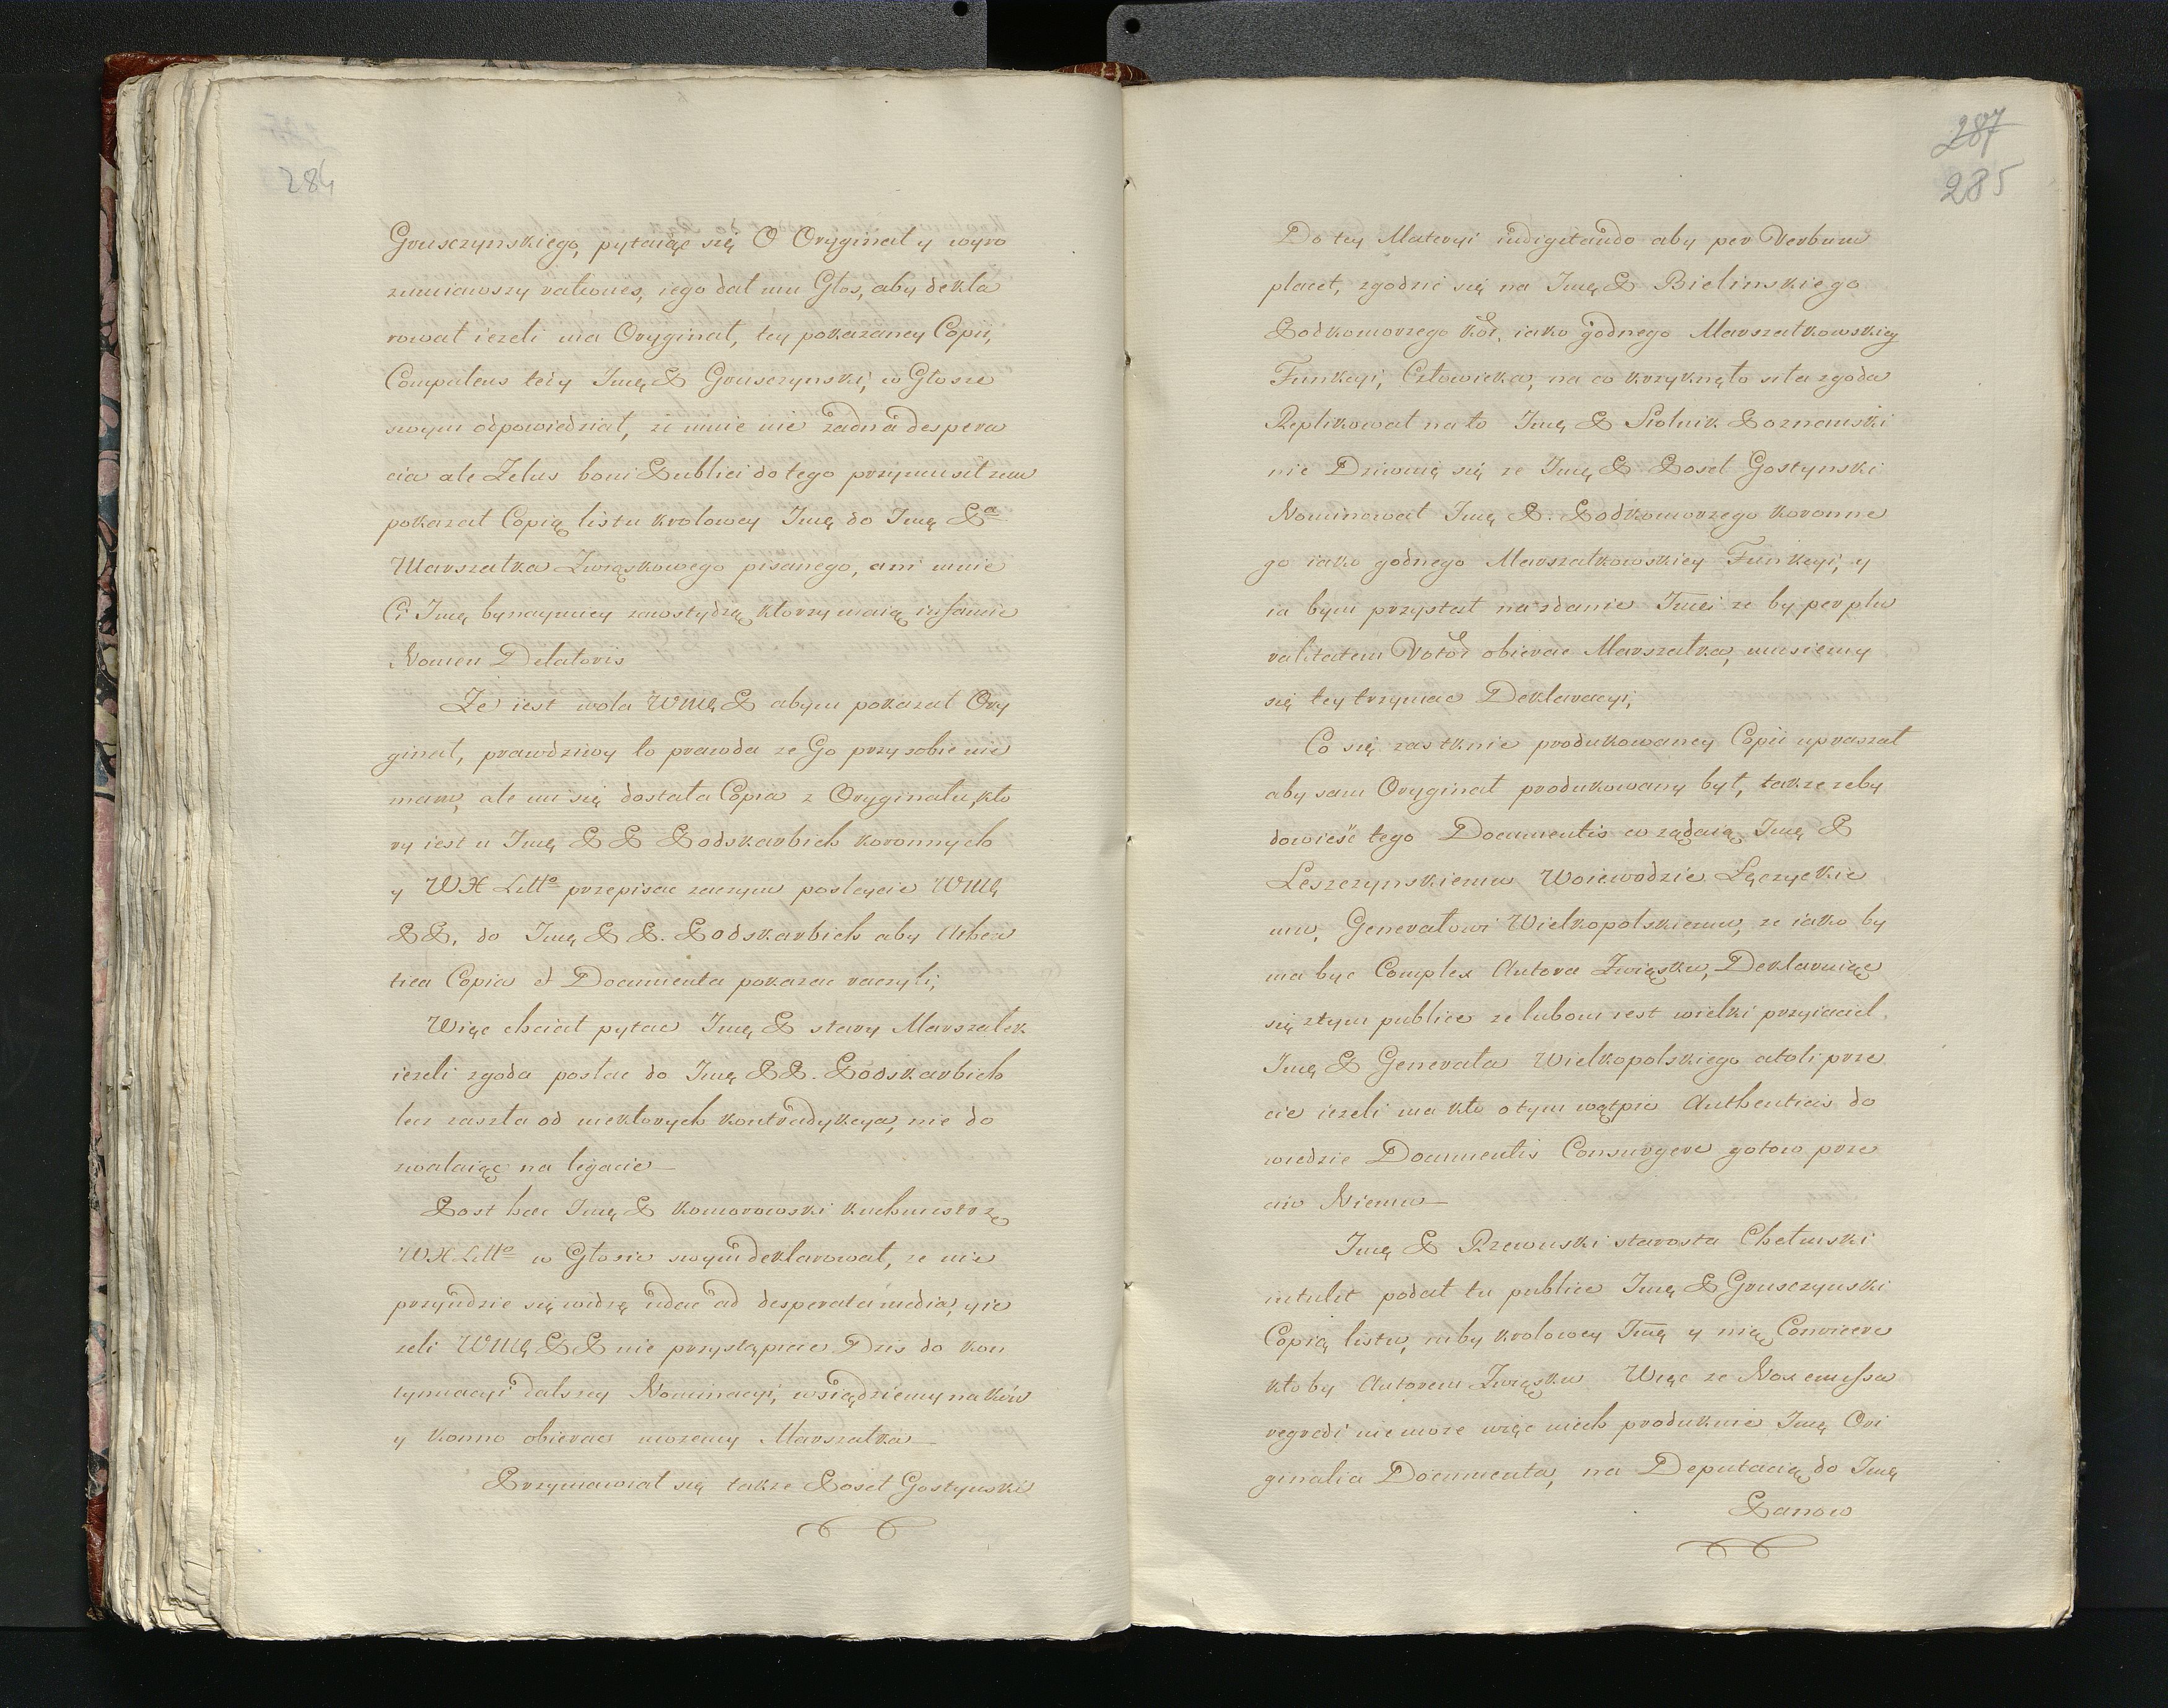 284
Gruszczynskiego, pytaiąc się O Oryginał y wyro
zumiawszy rationes, iego dał mu Głos, aby dekla
rował iezeli ma Oryginał, tey pokazaney Copii,
Compatens tedy Jmę P Gruszczynski, w Głosie
swym odpowiedział, zi mnie nie zadna despera
cia ale Zelus boni Publici do tego przymusił zem
pokazał Copią listu krolowey Jmę do Jmę Pa
Marszałka Związkowego pisanego, ani mnie
Ci Jmę bynaymiey zawstydzą, ktorzy maią infamie
Nomen Delatoris
Ze iest wola WMę P abym pokazał Ory
ginał, prawdziwy to prawda ze Go przy sobie nie
mam, ale mi się dostała Copia z Oryginału, kto
ry iest u Jmę P P Podskarbich koronnych
y WX Litto przepisac zaczym poslaycie WMę
PP. do Jmę P P. Podskarbich aby Uthen
tica Copia et Documenta pokazac raczyli;
Więc chciał pytac Jmę P stary Marszałek
iezeli zgoda posłac do Jmę PP. Podskarbich
lecz zaszła od niektorych kontradykcya, nie do
zwalaiąc na legacie
Post haec Jmę P Komorowski kuchmistrz
WX Litto w Głosie swym deklarował, ze nie
przyidzie się widzę udac ad desperata media, y ie
zeli WMę PP nie przystąpicie Dzis do kon
tynuacyi dalszey Nominacyi, wsiądziemy na kow
y konno obierac mozemy Marszałka
Przymawiał się takze Poseł Gostynski
287
285
Do tey Materyi indigitando aby per Verbum
placet, zgodzic się na Jmę P Bielinskiego
Podkomorzego Kor. iako godnego Marszałkowskiey
Funkcyi, Człowieka, na co krzyknęło siła zgoda
Replikował na to Jmę P Stolnik Poznanski
nie Dziwuię się ze Jmę P Poseł Gostynski
Nominował Jmę P. Podkomorzego koronne
go iako godnego Marszałkowskiey Funkcyi, y
ia bym przystał na zdanie Jmci ze by per plu
ralitatem Votor obierac Marszałka, musiemy
się tey trzymac Deklaracyi;
Co się zas tknie produkowaney Copii upraszał
aby sam Oryginał produkowany był, takze zeby
dowiesc tego Documentis co zadaią Jmę P
Leszczynskiemu Woiewodzie Łęczyckie
mu, Generałowi Wielkopolskiemu, ze iako by
ma byc Complex Autora Związku, Deklaruiąc
się z tym publice ze lubom iest wielki przyiaciel
Jmę P Generała Wielkopolskiego atoli prze
cie iezeli ma kto o tym wątpic Authenticis do
wiedzie Documentis Consurgere gotow prze
ciw Niemu
Jmę P Rzewuski starosta Chełmski
intulit podał tu publice Jmę P Gruszczynski
Copią listu, niby krolowey Jmę y nią Convicere
kto by Autorem Związku Więc ze Vox emissa
regredi nie moze więc niech produkuie Jmę Ori
ginalia Documenta, na Deputacią do Jmę
Panow